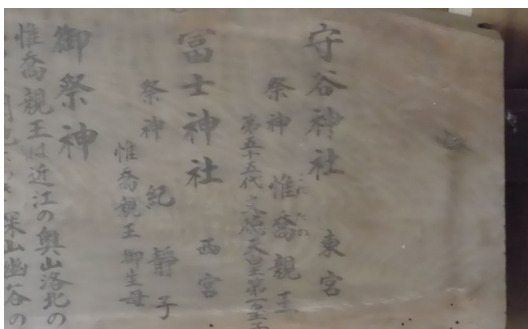 守谷神社 東宮
祭神 惟喬親王
第五十五代文徳天皇第一皇子
冨士神社 西宮
祭神 紀静子
惟喬親王御生母
御祭神
惟喬親王は近江の奥山洛北の
深山幽谷の